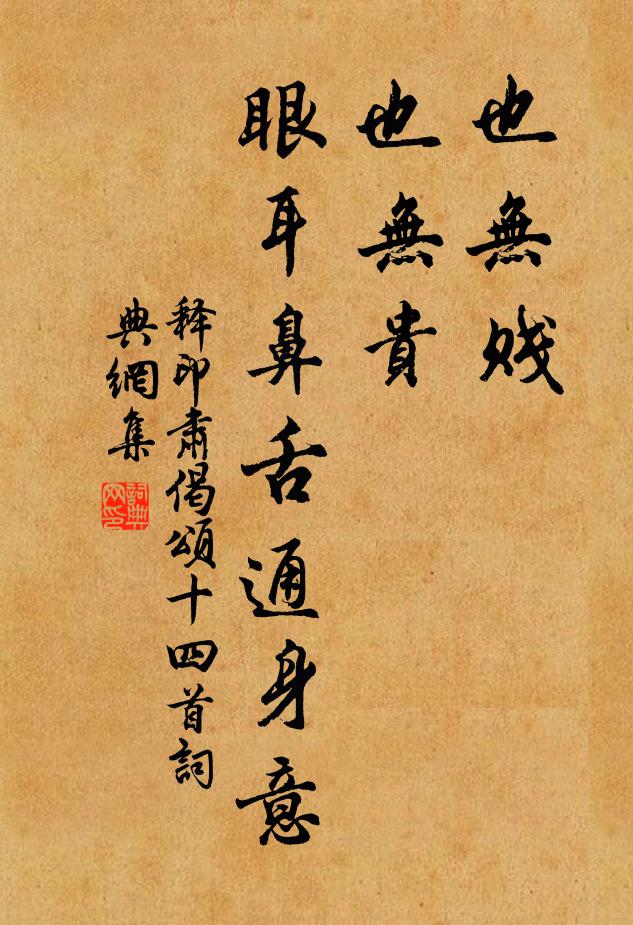 也無贱
也無貴
眼耳鼻舌通身意
释印肃偈頌十四首詞
典網集
詞典
网印